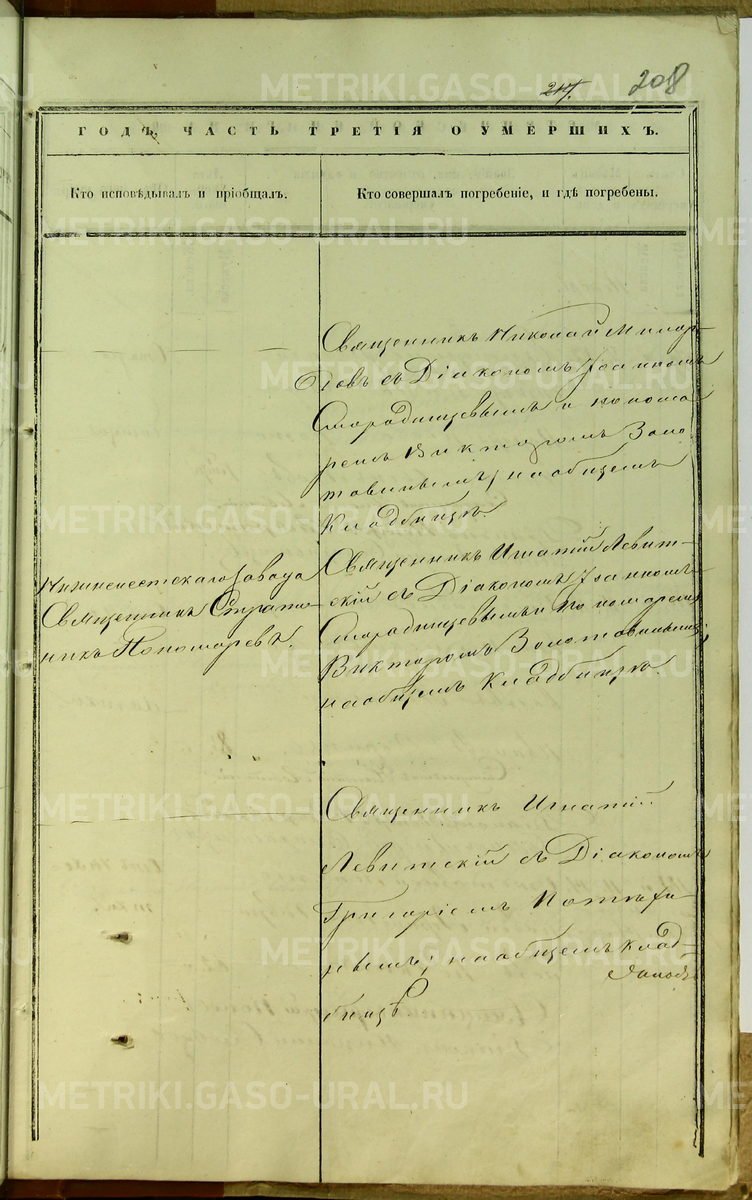 217.
208
ГОДЪ, ЧАСТЬ ТРЕТІЯ О УМЕРШИХЪ.
Кто исповѣдывалъ и пріобщалъ.
Кто совершалъ погребеніе, и гдѣ погребены.
Священникъ Николай Милор-
довъ съ Діакономъ Іоанномъ
Старадищевымъ и понома
ремъ Викторомъ Золо
товинымъ, на общемъ
Кладбищѣ.
Нижнеистскаго Завода
Священникъ Страто-
никъ Пономаревъ.
Священникъ Игнатій Левит-
скій съ Діакономъ Іоанномъ
Старадищевымъ и пономаремъ
Викторомъ Золотовинымъ;
на общемъ Кладбищѣ.
Священникъ Игнатій
Левитскій съ Діакономъ
Григоріемъ
нымъ, на общемъ Клад-
бищѣ
METRIKI.GASO-URAL.RU